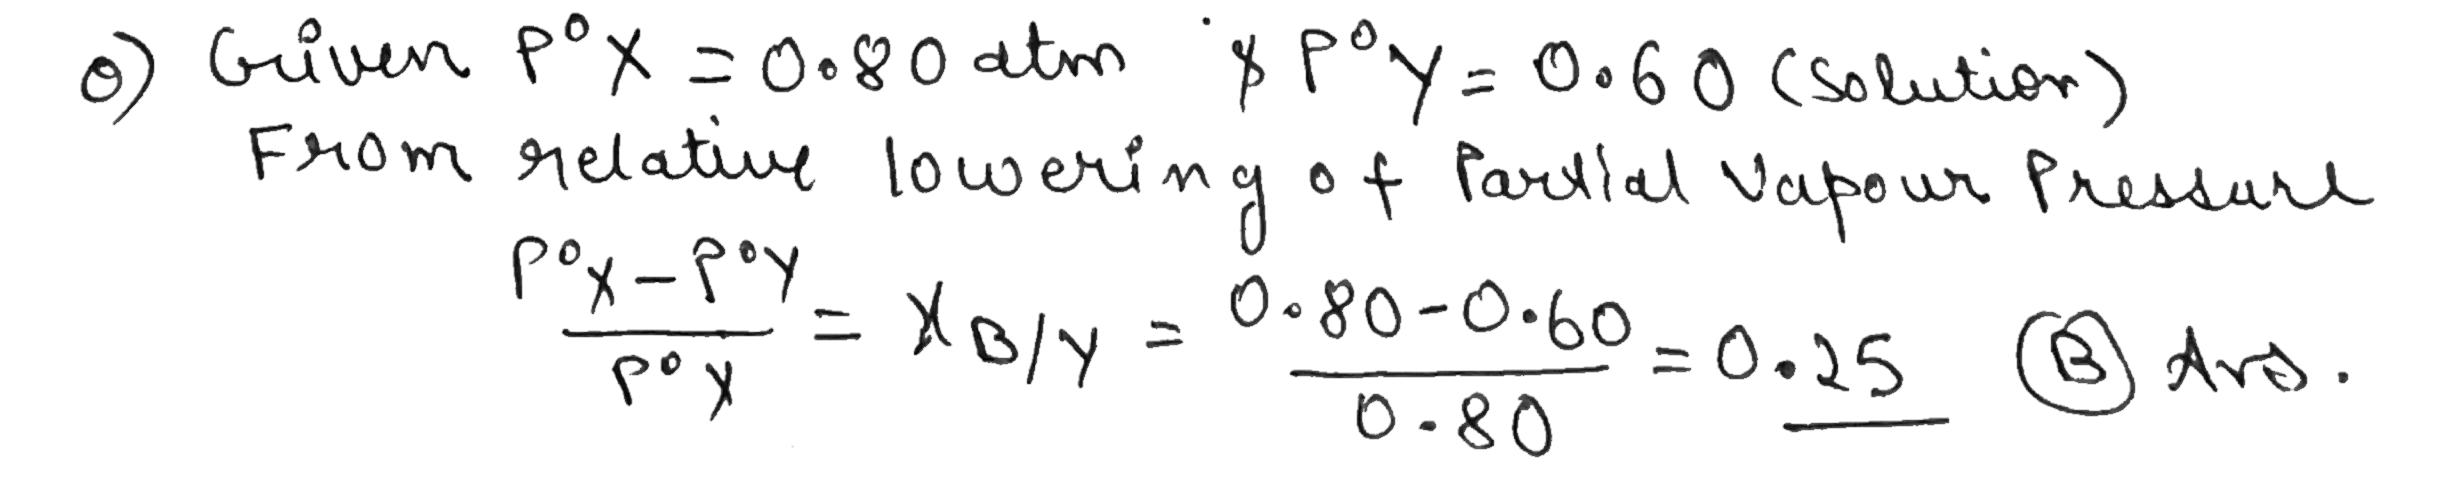 0) Given P°X = 0.80 atm & P°Y = 0.60 (Solution)
From relative lowering of Partial Vapour Pressure
P°X - P°Y / P°X = X B/Y = 0.80 - 0.60 / 0.80 = 0.25 (B) Ans.